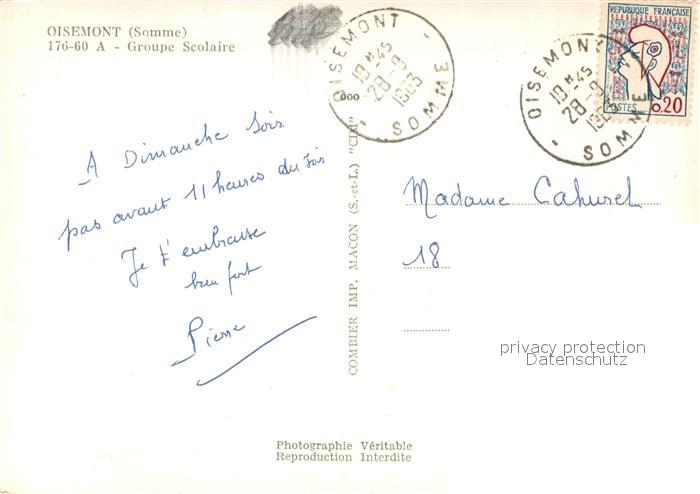 OISEMONT (Somme)
176-60 A - Groupe Scolaire
OISEMONT
18 H -45
28 -9
1963
SOMME
OISEMONT
18 H -45
28 -9
SOMME
REPUBLIQUE FRANÇAISE
POSTES 0,20
A Dimanche Soir
pas avant 11 heures du soir
Je t'embrasse
bien fort
Pierre
COMBIER IMP. MACON (S.-et-L.) "CIM"
Madame Cahurel
18
privacy protection
Datenschutz
Photographie Véritable
Reproduction Interdite